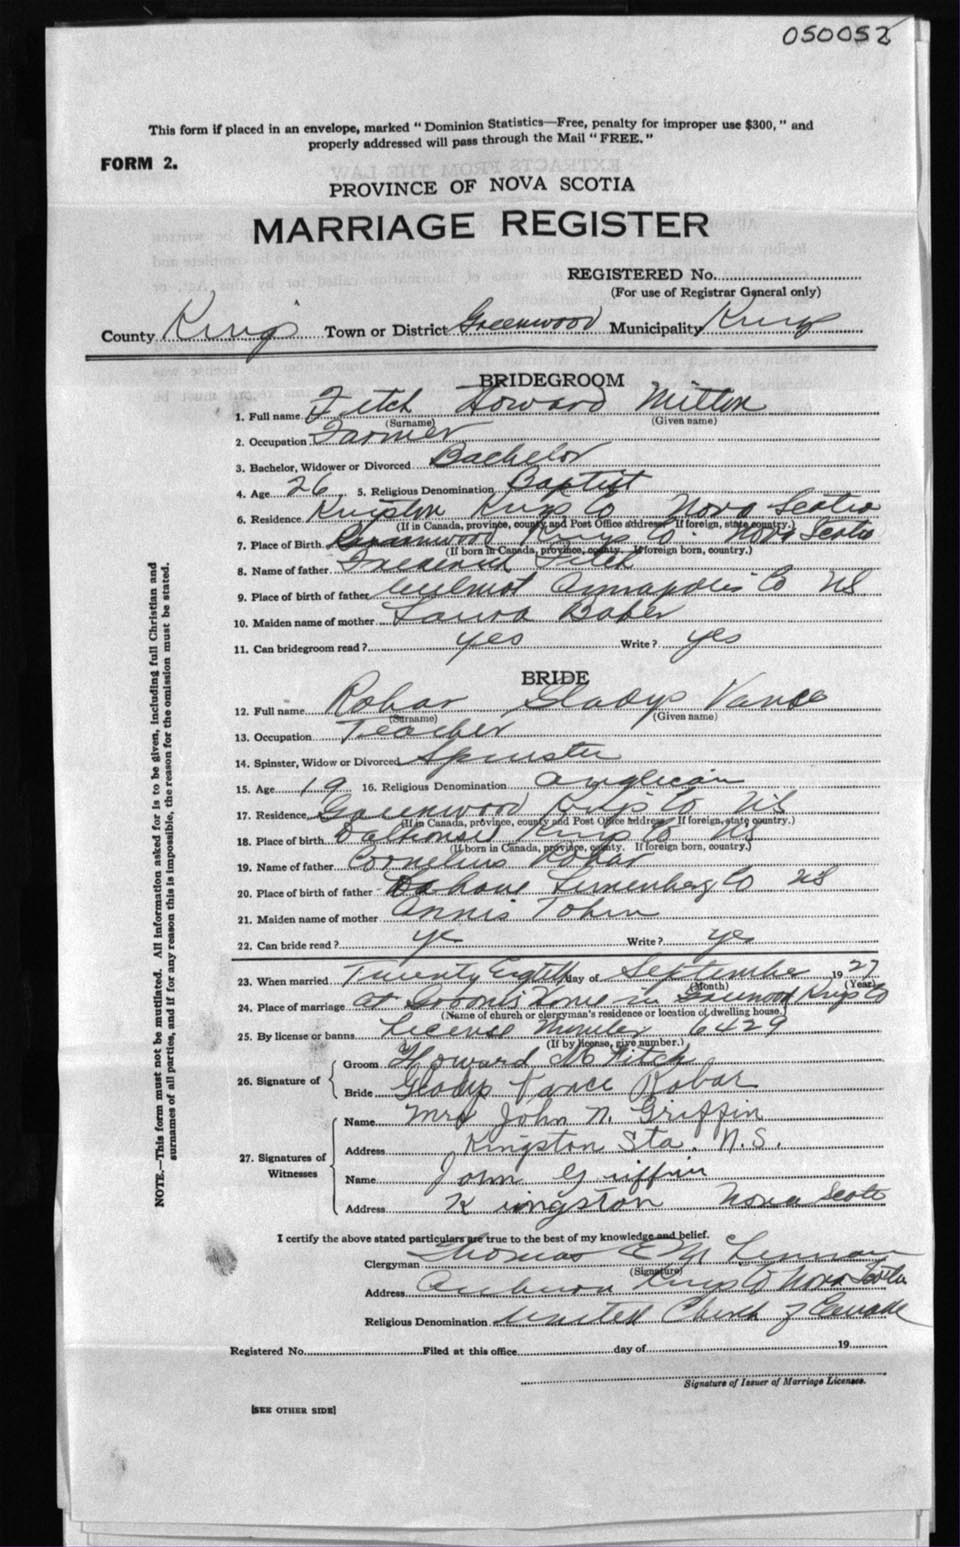 050052
This form if placed in an envelope, marked "Dominion Statistics—Free, penalty for improper use $300," and
properly addressed will pass through the Mail "FREE."
FORM 2.
PROVINCE OF NOVA SCOTIA
MARRIAGE REGISTER
REGISTERED No.
(For use of Registrar General only)
County Kings Town or District Greenwood Municipality Kings
BRIDEGROOM
1. Full name Fitch Howard Milton
(Surname) (Given name)
2. Occupation Farmer
3. Bachelor, Widower or Divorced Bachelor
4. Age 26 5. Religious Denomination Baptist
6. Residence Kingston Kings Co Nova Scotia
(If in Canada, province, county and Post Office address. If foreign, state country.)
7. Place of Birth Greenwood Kings Co. Nova Scotia
(If born in Canada, province, county. If foreign born, country.)
8. Name of father Frederick Fitch
9. Place of birth of father Wilmot Annapolis Co NS
10. Maiden name of mother Laura Baker
11. Can bridegroom read? yes Write? yes
BRIDE
12. Full name Robar Gladys Vance
(Surname) (Given name)
13. Occupation Teacher
14. Spinster, Widow or Divorced Spinster
15. Age 19 16. Religious Denomination Anglican
17. Residence Greenwood Kings Co NS
(If in Canada, province, county and Post Office address. If foreign, state country.)
18. Place of birth Dalhousie Kings Co NS
(If born in Canada, province, county. If foreign born, country.)
19. Name of father Cornelius Robar
20. Place of birth of father Lunenberg Co NS
21. Maiden name of mother Annis Tobin
22. Can bride read? yes Write? yes
23. When married Twenty Eighth day of September 1927
(Month) (Year)
24. Place of marriage at Home in Greenwood Kings Co
(Name of church or clergyman's residence or location of dwelling house.)
25. By license or banns License Number 6429
(If by license, give number.)
26. Signature of
Groom Howard M Fitch
Bride Gladys Vance Robar
27. Signatures of Witnesses
Name Mrs John N. Griffin
Address Kingston Sta. N.S.
Name John Griffin
Address Kingston Nova Scotia
I certify the above stated particulars are true to the best of my knowledge and belief.
Clergyman Thomas
(Signature)
Address Auburn Kings Co Nova Scotia
Religious Denomination United Church of Canada
Registered No. Filed at this office day of 19
Signature of Issuer of Marriage Licenses.
[SEE OTHER SIDE]
NOTE.—This form must not be mutilated. All information asked for is to be given, including full Christian and
surnames of all parties, and if for any reason this is impossible, the reason for the omission must be stated.